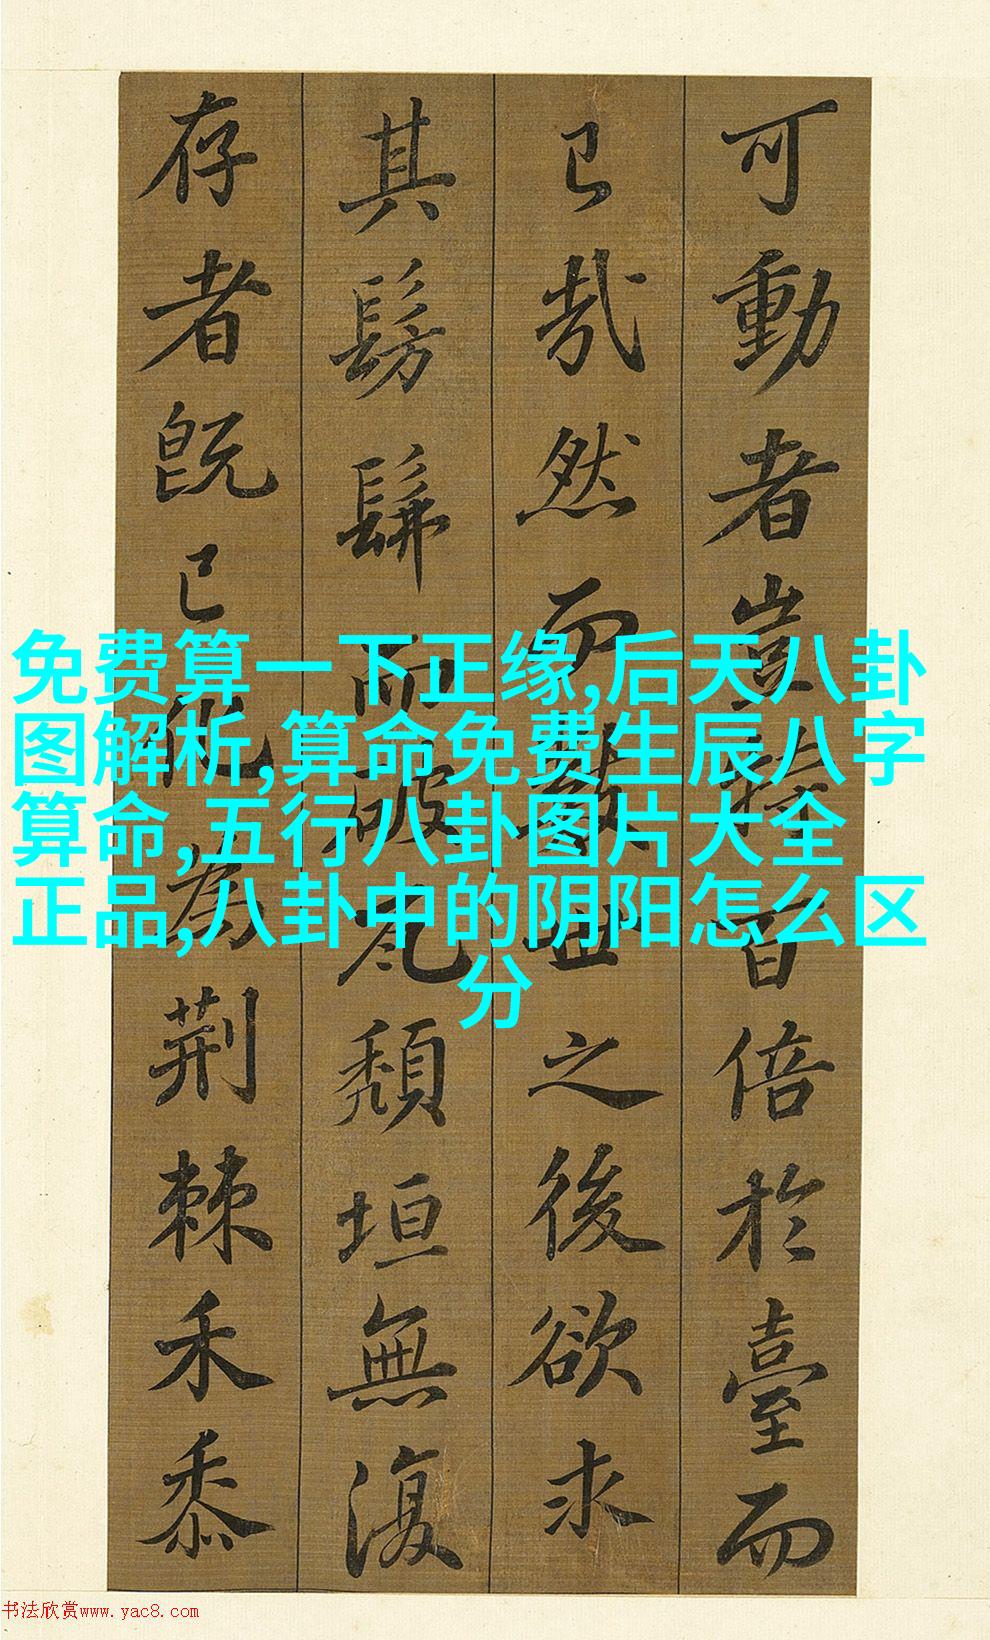 可動者豈特百倍於臺而
已哉然而數世之後欲求
其髣髴而破瓦頹垣無復
存者既已化為荊棘禾黍
免费算一下正缘,后天八卦
图解析,算命免费生辰八字
算命,五行八卦图片大全
正品,八卦中的阴阳怎么区
分
书法欣赏www.yac8.com